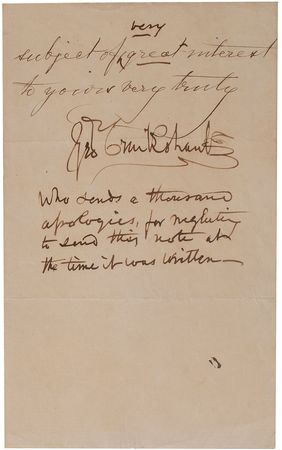 very
subject of great interest
to yours very truly
Geo Cruikshank
Who sends a thousand
apologies, for neglecting
to send this note at
the time it was written—